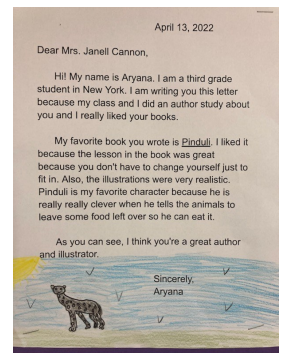 April 13, 2022
Dear Mrs. Janell Cannon,
Hi! My name is Aryana. I am a third grade
student in New York. I am writing you this letter
because my class and I did an author study about
you and I really liked your books.
My favorite book you wrote is Pinduli. I liked it
because the lesson in the book was great
because you don't have to change yourself just to
fit in. Also, the illustrations were very realistic.
Pinduli is my favorite character because he is
really really clever when he tells the animals to
leave some food left over so he can eat it.
As you can see, I think you're a great author
and illustrator.
Sincerely,
Aryana